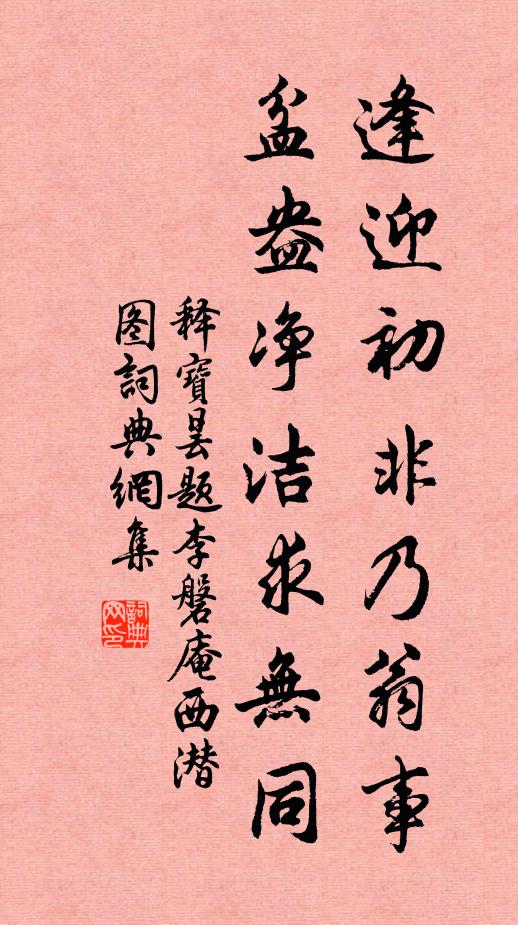 逢迎初非乃翁事
盆盎净洁求無同
释寶昙题李磐庵西潜
图詞典網集
詞典网印